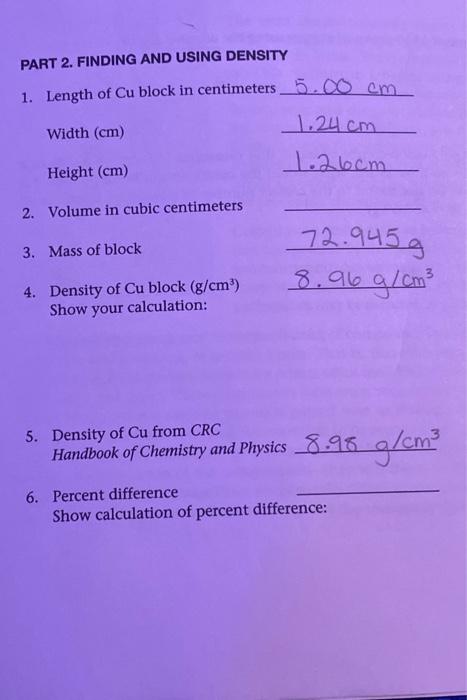 PART 2. FINDING AND USING DENSITY
1. Length of Cu block in centimeters 5.00 cm
Width (cm) 1.24 cm
Height (cm) 1.26cm
2. Volume in cubic centimeters
3. Mass of block 72.945 g
4. Density of Cu block (g/cm³) 8.96 g/cm³
Show your calculation:
5. Density of Cu from CRC
Handbook of Chemistry and Physics 8.98 g/cm³
6. Percent difference
Show calculation of percent difference: